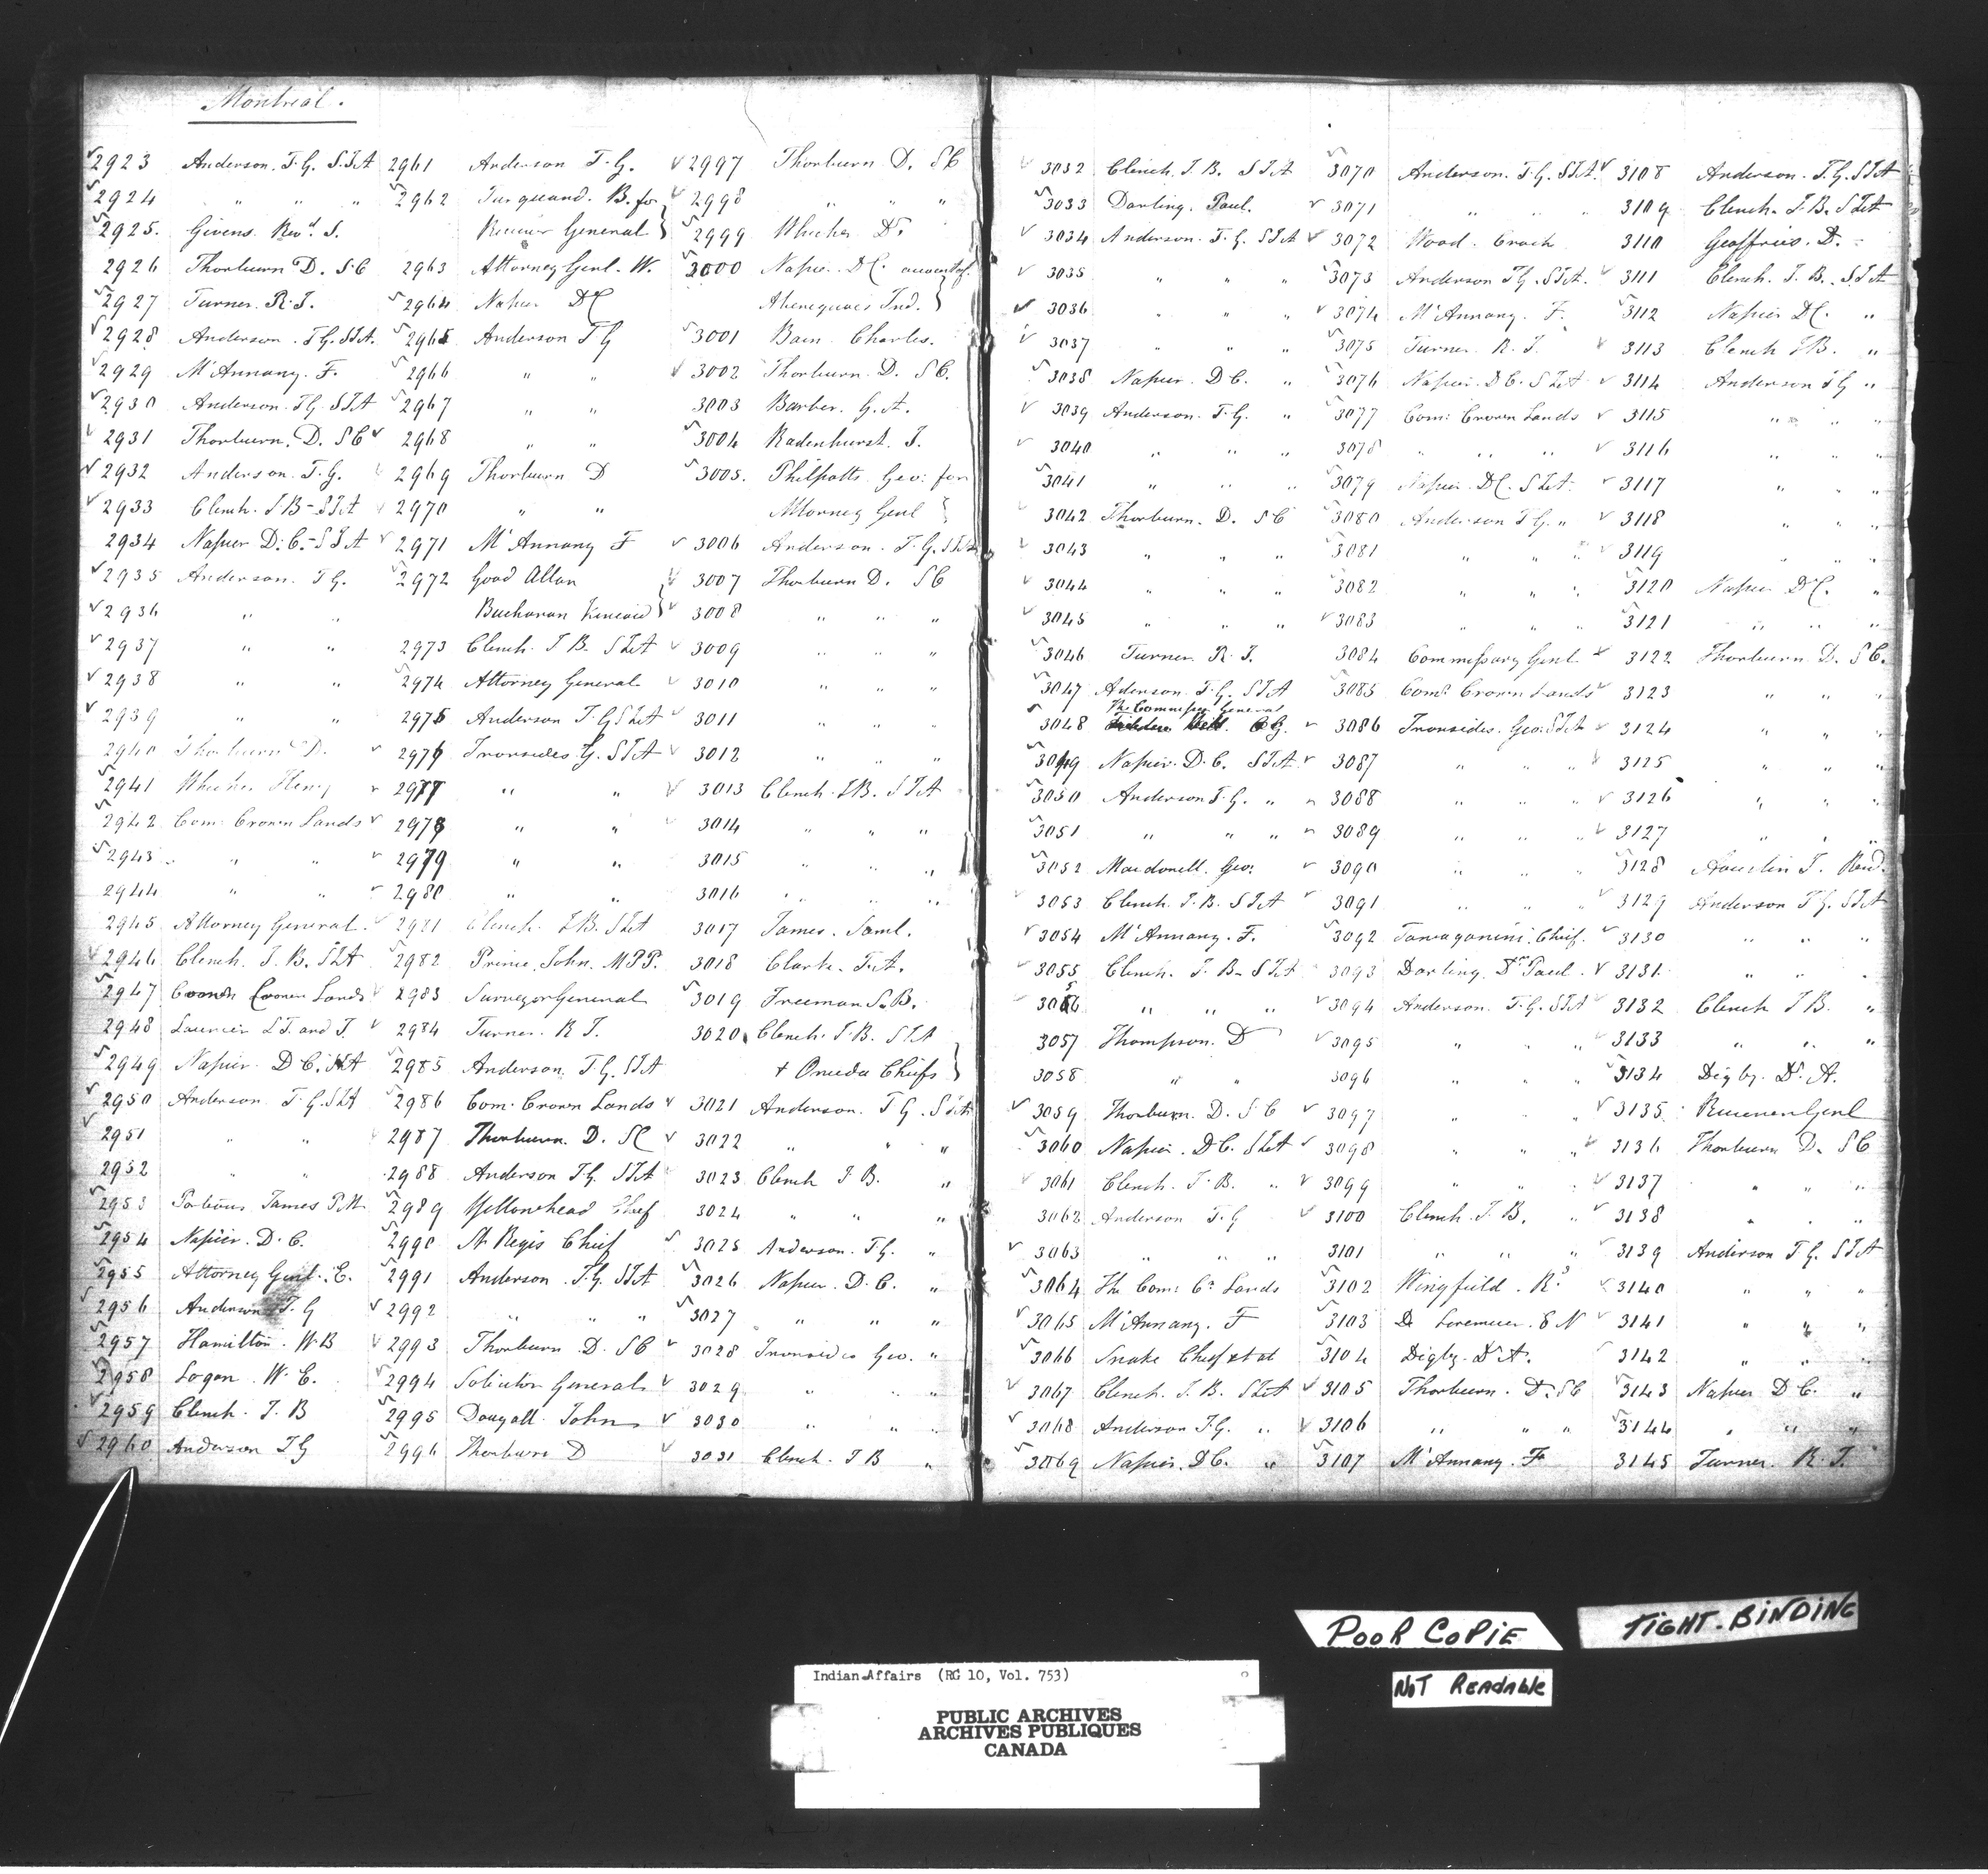 Montreal.
2923 Anderson. T. G. S.I.A
2924 " " "
2925. Givens Revd. S.
2926 Thorburn D. S.C
2927 Turner. R. J.
2928 Anderson. T.G. S.I.A.
2929 McAnnany. F.
2930 Anderson. T.G. S.I.A
2931 Thorburn. D. S C
2932 Anderson. T. G.
2933 Clench. J. B - S I A
2934 Napier D. C. - S I A
2935 Anderson. T G.
2936 " "
2937 " "
2938 " "
2939 " "
2940 Thorburn D.
2941 Whicher Henry
2942 Com: Crown Lands
2943 " "
2944 " "
2945 Attorney General.
2946 Clench. J. B. S I A
2947 Crown Lands
2948 L. T. and J.
2949 Napier. D C. S I A
2950 Anderson T. G. S I A
2951 " "
2952 " "
2953 James
2954 Napier. D. C.
2955 Attorney Genl. E.
2956 Anderson T. G
2957 Hamilton. W. B
2958 Logan. W. E.
2959 Clench. J. B
2960 Anderson T G
2961 Anderson T. G.
2962 Turquand. B. for
Receiver General }
2963 Attorney Genl. W.
2964 Napier D C
2965 Anderson T G
2966 " "
2967 " "
2968 " "
2969 Thorburn D
2970 " "
2971 McAnnany F
2972 Good Allan
Buchanan Kincaid }
2973 Clench. J B. S I A
2974 Attorney General
2975 Anderson T. G S I A
2976 Ironsides G. S I A
2977 " "
2978 " "
2979 " "
2980 " "
2981 Clench. J B. S I A
2982 Prince. John. M P P.
2983 Surveyor General
2984 Turner. R J.
2985 Anderson T. G. S I A
2986 Com: Crown Lands
2987 Thorburn. D. S C
2988 Anderson T G. S I A
2989 Yellowhead Chief
2990 St Regis Chief
2991 Anderson T. G. S I A
2992 " " "
2993 Thorburn D. S C
2994 Solicitor General
2995 Dougall John
2996 Thorburn D
2997 Thorburn D. S C
2998 " " "
2999 Whicher Dr.
3000 Napier D C.
Abenequais Ind. }
3001 Bain Charles.
3002 Thorburn D. S C.
3003 Barber. G. A.
3004 Radenhurst J.
3005. Philpotts Geo: for
Attorney Genl }
3006 Anderson. T. G. S I A
3007 Thorburn D. S C
3008 " " "
3009 " " "
3010 " " "
3011 " " "
3012 " " "
3013 Clench. J B. S I A
3014 " " "
3015 " "
3016 " "
3017 James. Saml.
3018 Clark. T. A.
3019 Freeman S. B.
3020 Clench. J. B. S I A
+ Oneida Chiefs }
3021 Anderson. T G. S I A
3022 " " "
3023 Clench J B. "
3024 " " "
3025 Anderson. T G. "
3026 Napier. D. C. "
3027 " " "
3028 Ironsides Geo. "
3029 " " "
3030 " " "
3031 Clench. J B "
3032 Clench. J. B. S I A
3033 Darling. Paul.
3034 Anderson. T. G. S I A
3035 " " "
3036 " " "
3037 " " "
3038 Napier. D C. "
3039 Anderson. T. G. "
3040 " " "
3041 " " "
3042 Thorburn. D. S C
3043 " " "
3044 " " "
3045 " " "
3046 Turner. R. J.
3047 Aderson. T. G. S I A
The Commissy General
3048 C G.
3049 Napier. D. C. S I A
3050 Anderson T. G. "
3051 " " "
3052 Macdonell. Geo:
3053 Clench. J. B. S I A
3054 McAnnany. F.
3055 Clench. J B. S I A
3056 " " "
3057 Thompson. D
3058 " "
3059 Thorburn. D. S C
3060 Napier. D C. S I A
3061 Clench. J. B. "
3062 Anderson T. G
3063 " " "
3064 The Com: Cn Lands
3065 McAnnany. F
3066 Snake Chief et al
3067 Clench. J. B. S I A
3068 Anderson T. G. "
3069 Napier. D C. "
3070 Anderson. T. G. S I A.
3071 " " "
3072 Wood. Enoch
3073 Anderson T G. S I A.
3074 McAnnany. F.
3075 Turner. R. J.
3076 Napier. D C. S I A
3077 Com: Crown Lands
3078 " " "
3079 Napier. D C. S I A.
3080 Anderson T G. "
3081 " " "
3082 " " "
3083 " " "
3084 Commissary Genl
3085 Comr Crown Lands
3086 Ironsides. Geo: S I A
3087 " " "
3088 " " "
3089 " " "
3090 " "
3091 " " "
3092 Chief.
3093 Darling. Dr Paul.
3094 Anderson. T. G. S I A
3095 " " "
3096 " "
3097 " "
3098 " " "
3099 " " "
3100 Clench. J. B. "
3101 " " "
3102 Wingfield. R.
3103
3104 Digby. Dr A.
3105 Thorburn. D. S C
3106 " " "
3107 McAnnany. F
3108 Anderson. T. G. S I A
3109 Clench. J. B. S I A
3110 Geoffries. D.
3111 Clench. J. B. S I A
3112 Napier D C. "
3113 Clench J B. "
3114 Anderson T G "
3115 " " "
3116 " "
3117 " " "
3118 " " "
3119
3120 Napier D C. "
3121 " " "
3122 Thorburn D. S C.
3123 " " "
3124 " " "
3125 " "
3126 " " "
3127 " " "
3128 J. Revd.
3129 Anderson T G. S I A
3130 " " "
3131 " " "
3132 Clench J B. "
3133 " " "
3134 Digby. Dr. A.
3135 Receiver Genl
3136 Thorburn D. S C
3137 " " "
3138 " " "
3139 Anderson T G. S I A
3140 " " "
3141 " " "
3142 " " "
3143 Napier D C. "
3144 " " "
3145 Turner. R. J.
POOR COPIE
TIGHT-BINDING
NOT READABLE
Indian Affairs (RG 10, Vol. 753)
PUBLIC ARCHIVES
ARCHIVES PUBLIQUES
CANADA